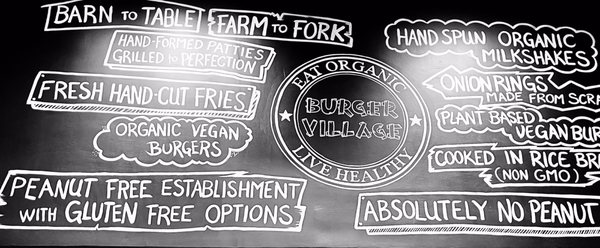 BARN TO TABLE
FARM TO FORK
HAND-FORMED PATTIES
GRILLED TO PERFECTION
FRESH HAND-CUT FRIES
ORGANIC VEGAN
BURGERS
PEANUT FREE ESTABLISHMENT
WITH GLUTEN FREE OPTIONS
EAT ORGANIC
BURGER
VILLAGE
LIVE HEALTHY
HAND SPUN ORGANIC
MILKSHAKES
ONION RINGS
MADE FROM SCRA
PLANT BASED
VEGAN BUR
COOKED IN RICE BRA
(NON GMO)
ABSOLUTELY NO PEANUT